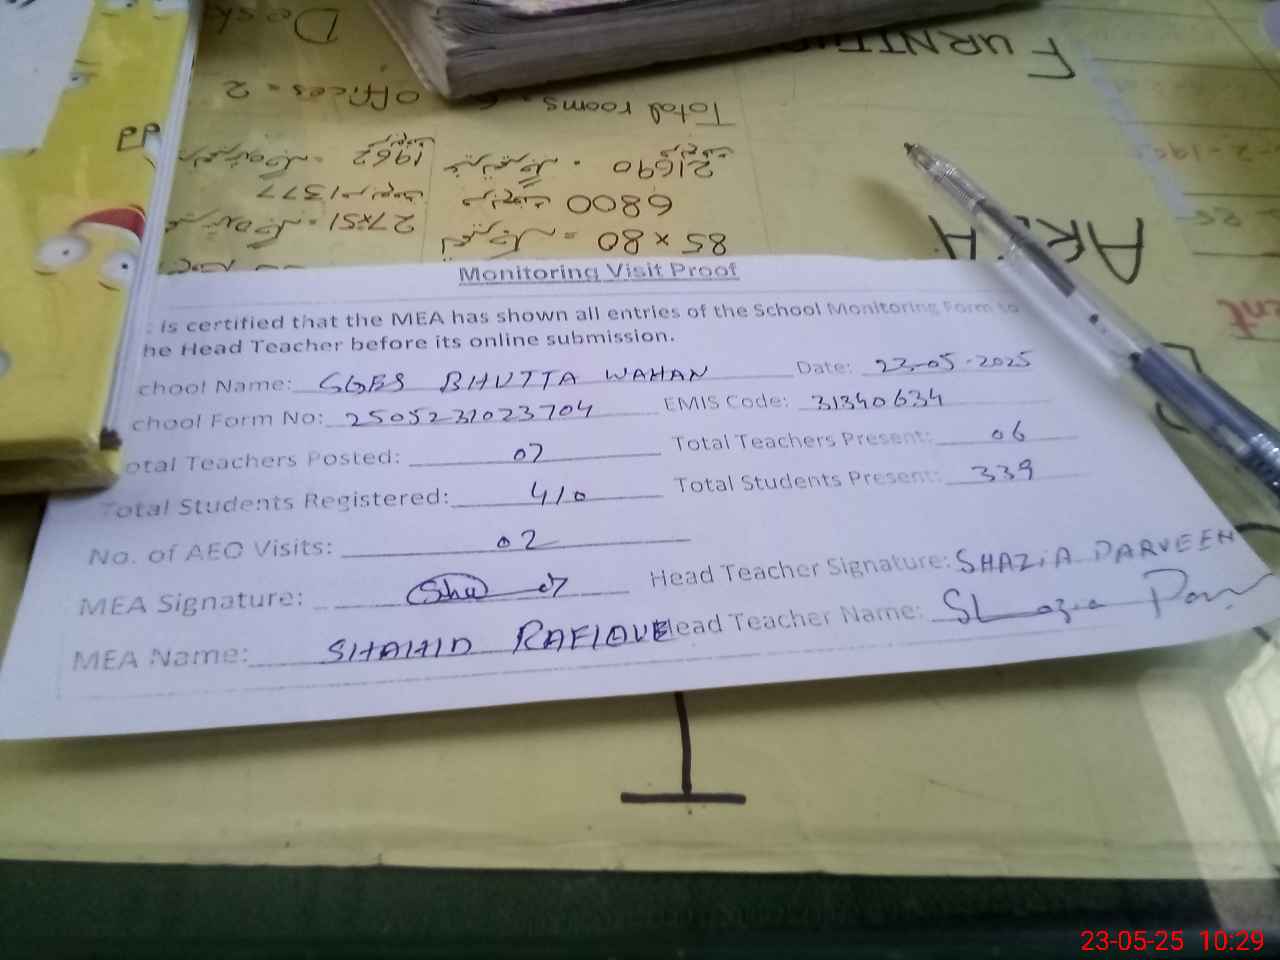 Desk
FURNITU
offices = 2
Total rooms = 6
1962
21690
1377
6800
27x51 =
85 x 80 =
AREA
Monitoring Visit Proof
is certified that the MEA has shown all entries of the School Monitoring Form to
he Head Teacher before its online submission.
chool Name: GGES BHUTTA WAHAN Date: 23-05-2025
chool Form No: 2505231023704 EMIS Code: 31340634
otal Teachers Posted: 07 Total Teachers Present: 06
Total Students Registered: 410 Total Students Present: 339
No. of AEO Visits: 02
MEA Signature: Head Teacher Signature: SHAZiA PARVEEN
MEA Name: SHAHID RAFIQUE ead Teacher Name: Shazia Par
23-05-25 10:29